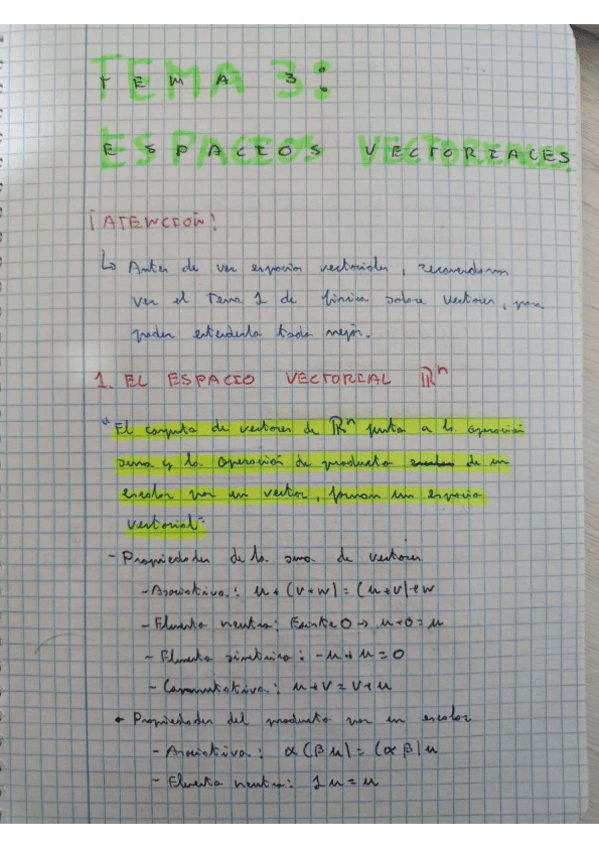 TEMA 3:
ESPACIOS VECTORIALES
¡ATENCIÓN!
↳ Antes de ver espacios vectoriales, recomendamos
ver el Tema 1 de física sobre vectores, para
poder entenderlo todo mejor.
1. EL ESPACIO VECTORIAL ℝⁿ
"El conjunto de vectores de ℝⁿ junto a la operación
suma y la operación de producto de un
escalar por un vector, forman un espacio
vectorial"
- Propiedades de la suma de vectores
- Asociativa: u + (v + w) = (u + v) + w
- Elemento neutro: Existe 0 → u + 0 = u
- Elemento simétrico: -u + u = 0
- Conmutativa: u + v = v + u
• Propiedades del producto por un escalar
- Asociativa: α(βu) = (αβ)u
- Elemento neutro: 1u = u